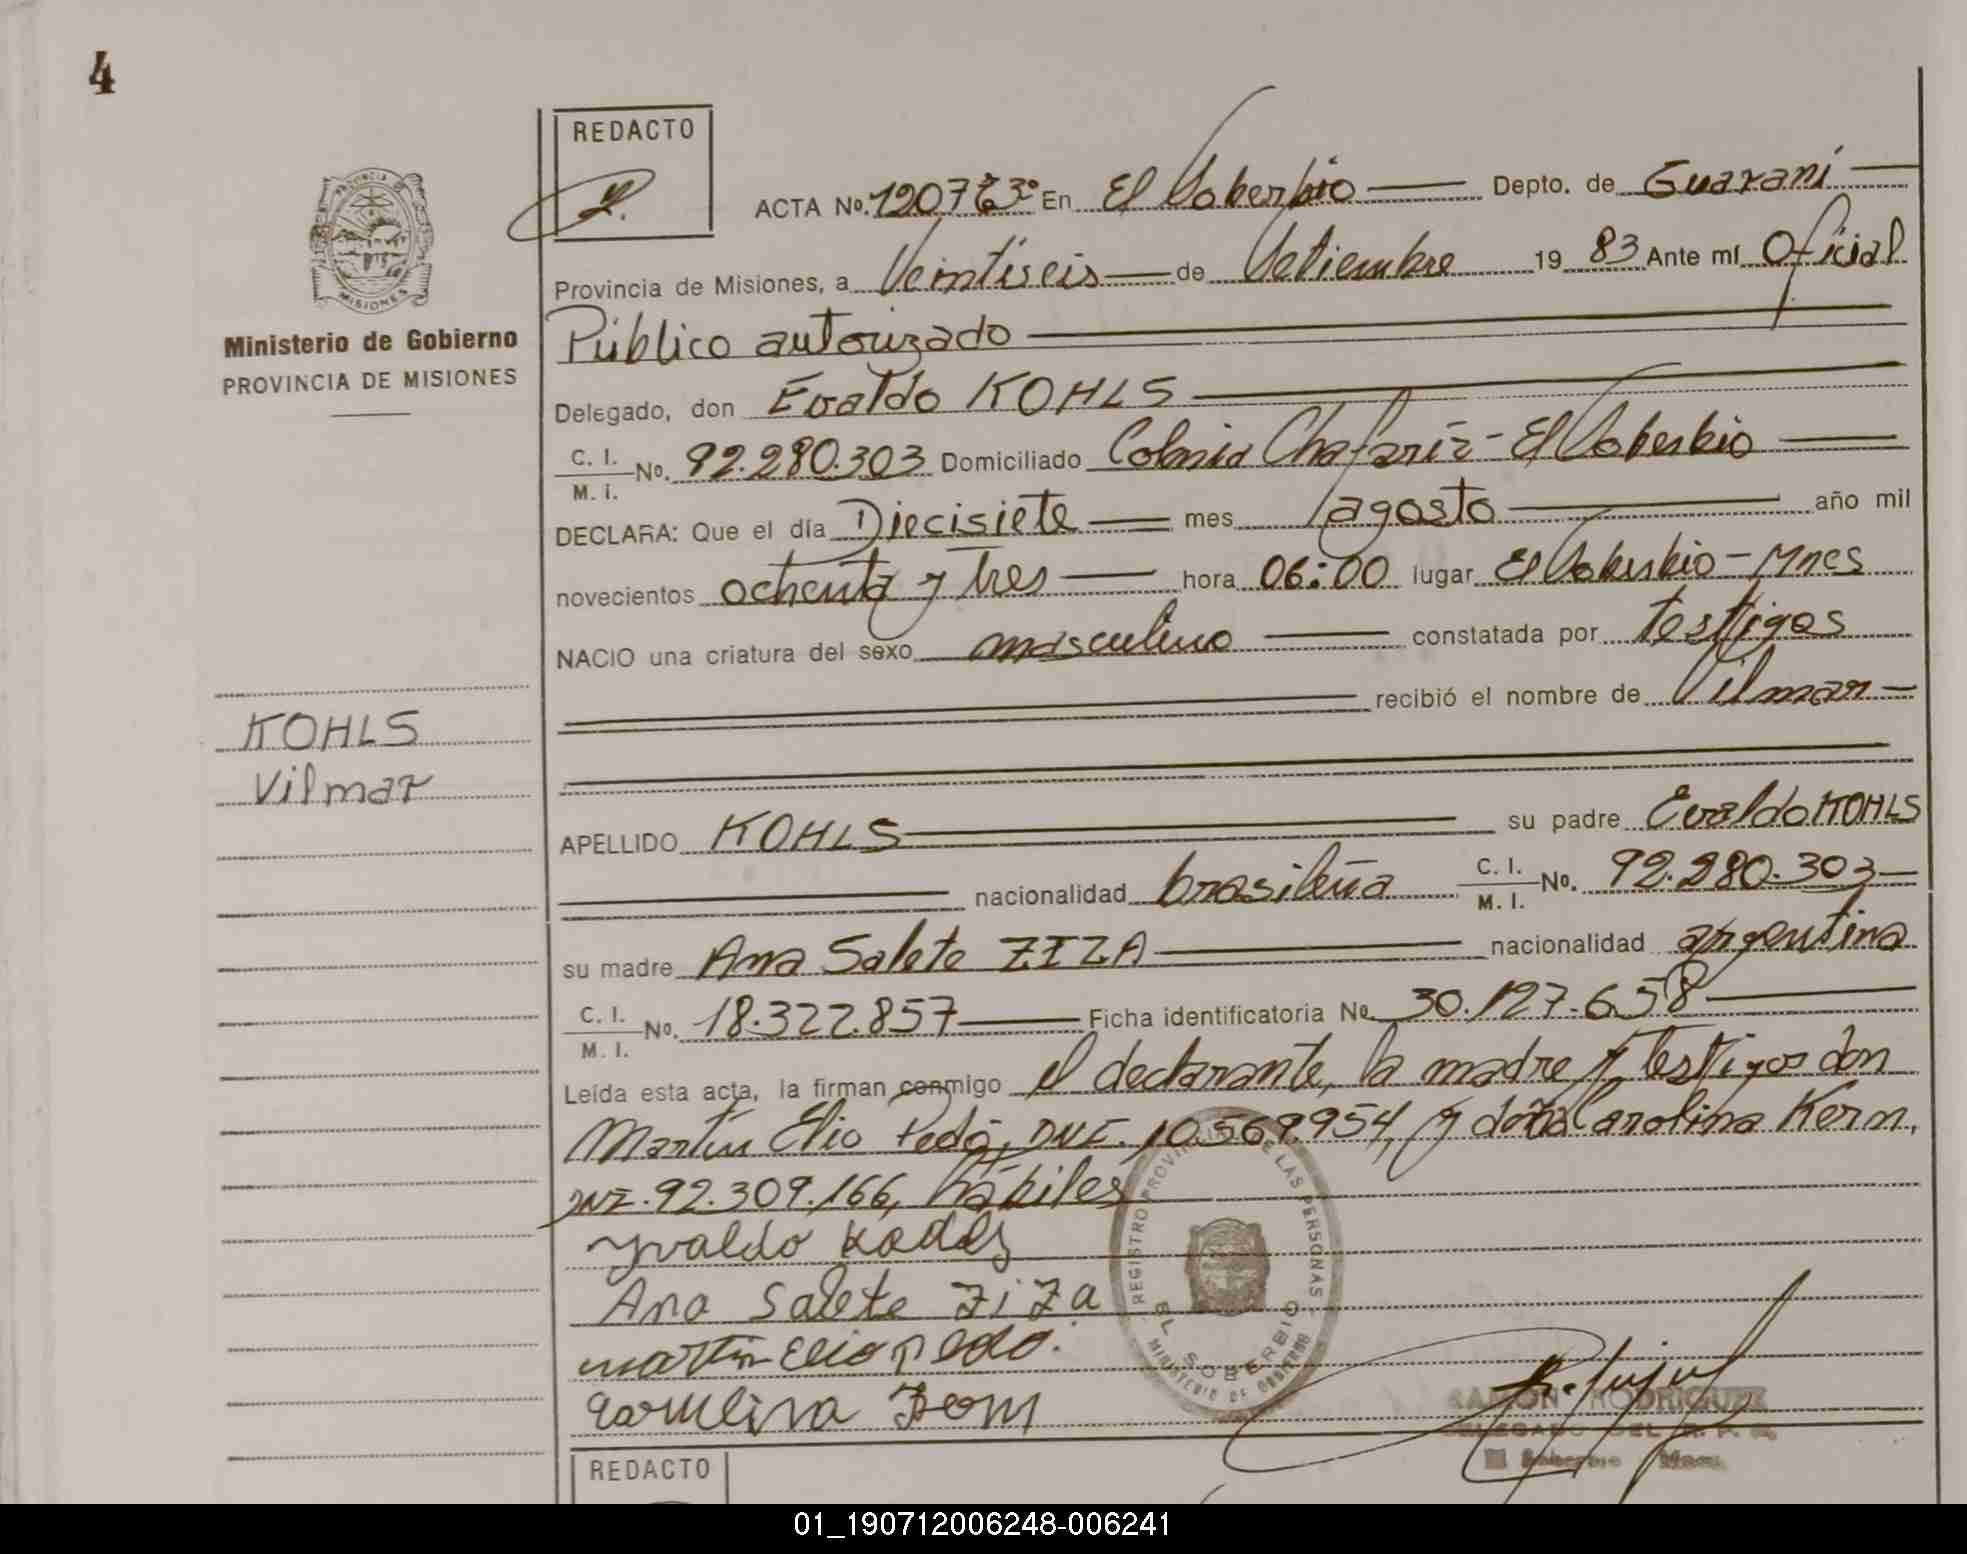 4
REDACTO
ACTA No. En El Soberbio Depto. de Guaraní
Provincia de Misiones, a Veintiseis de Setiembre 19 83 Ante mí Oficial
Público autorizado
Ministerio de Gobierno
PROVINCIA DE MISIONES
Delegado, don Evaldo KOHLS
C. I. / M. I. No. 92.280.303 Domiciliado Colonia Chafariz - El Soberbio
DECLARA: Que el día Diecisiete mes agosto año mil
novecientos ochenta y tres hora 06:00 lugar El Soberbio - Mnes
NACIO una criatura del sexo masculino constatada por testigos
recibió el nombre de Vilmar
KOHLS
Vilmar
APELLIDO KOHLS su padre Evaldo KOHLS
nacionalidad brasileña C. I. / M. I. No. 92.280.303
su madre Ana Salete ZIZA nacionalidad argentina
C. I. / M. I. No. 18.322.857 Ficha identificatoria No. 30.127.658
Leída esta acta, la firman conmigo el declarante, la madre y testigos don
Martín Elio Pedó, DNI. 10.569.954, y doña Carolina Kern,
DNI. 92.309.166, hábiles
Ana Salete ziza
martin elio pedo.
REGISTRO PROVINCIAL DE LAS PERSONAS
EL SOBERBIO
MINISTERIO DE GOBIERNO
RAMON RODRIGUEZ
DELEGADO DEL R. P. P.
El Soberbio Mnes.
REDACTO
01_190712006248-006241